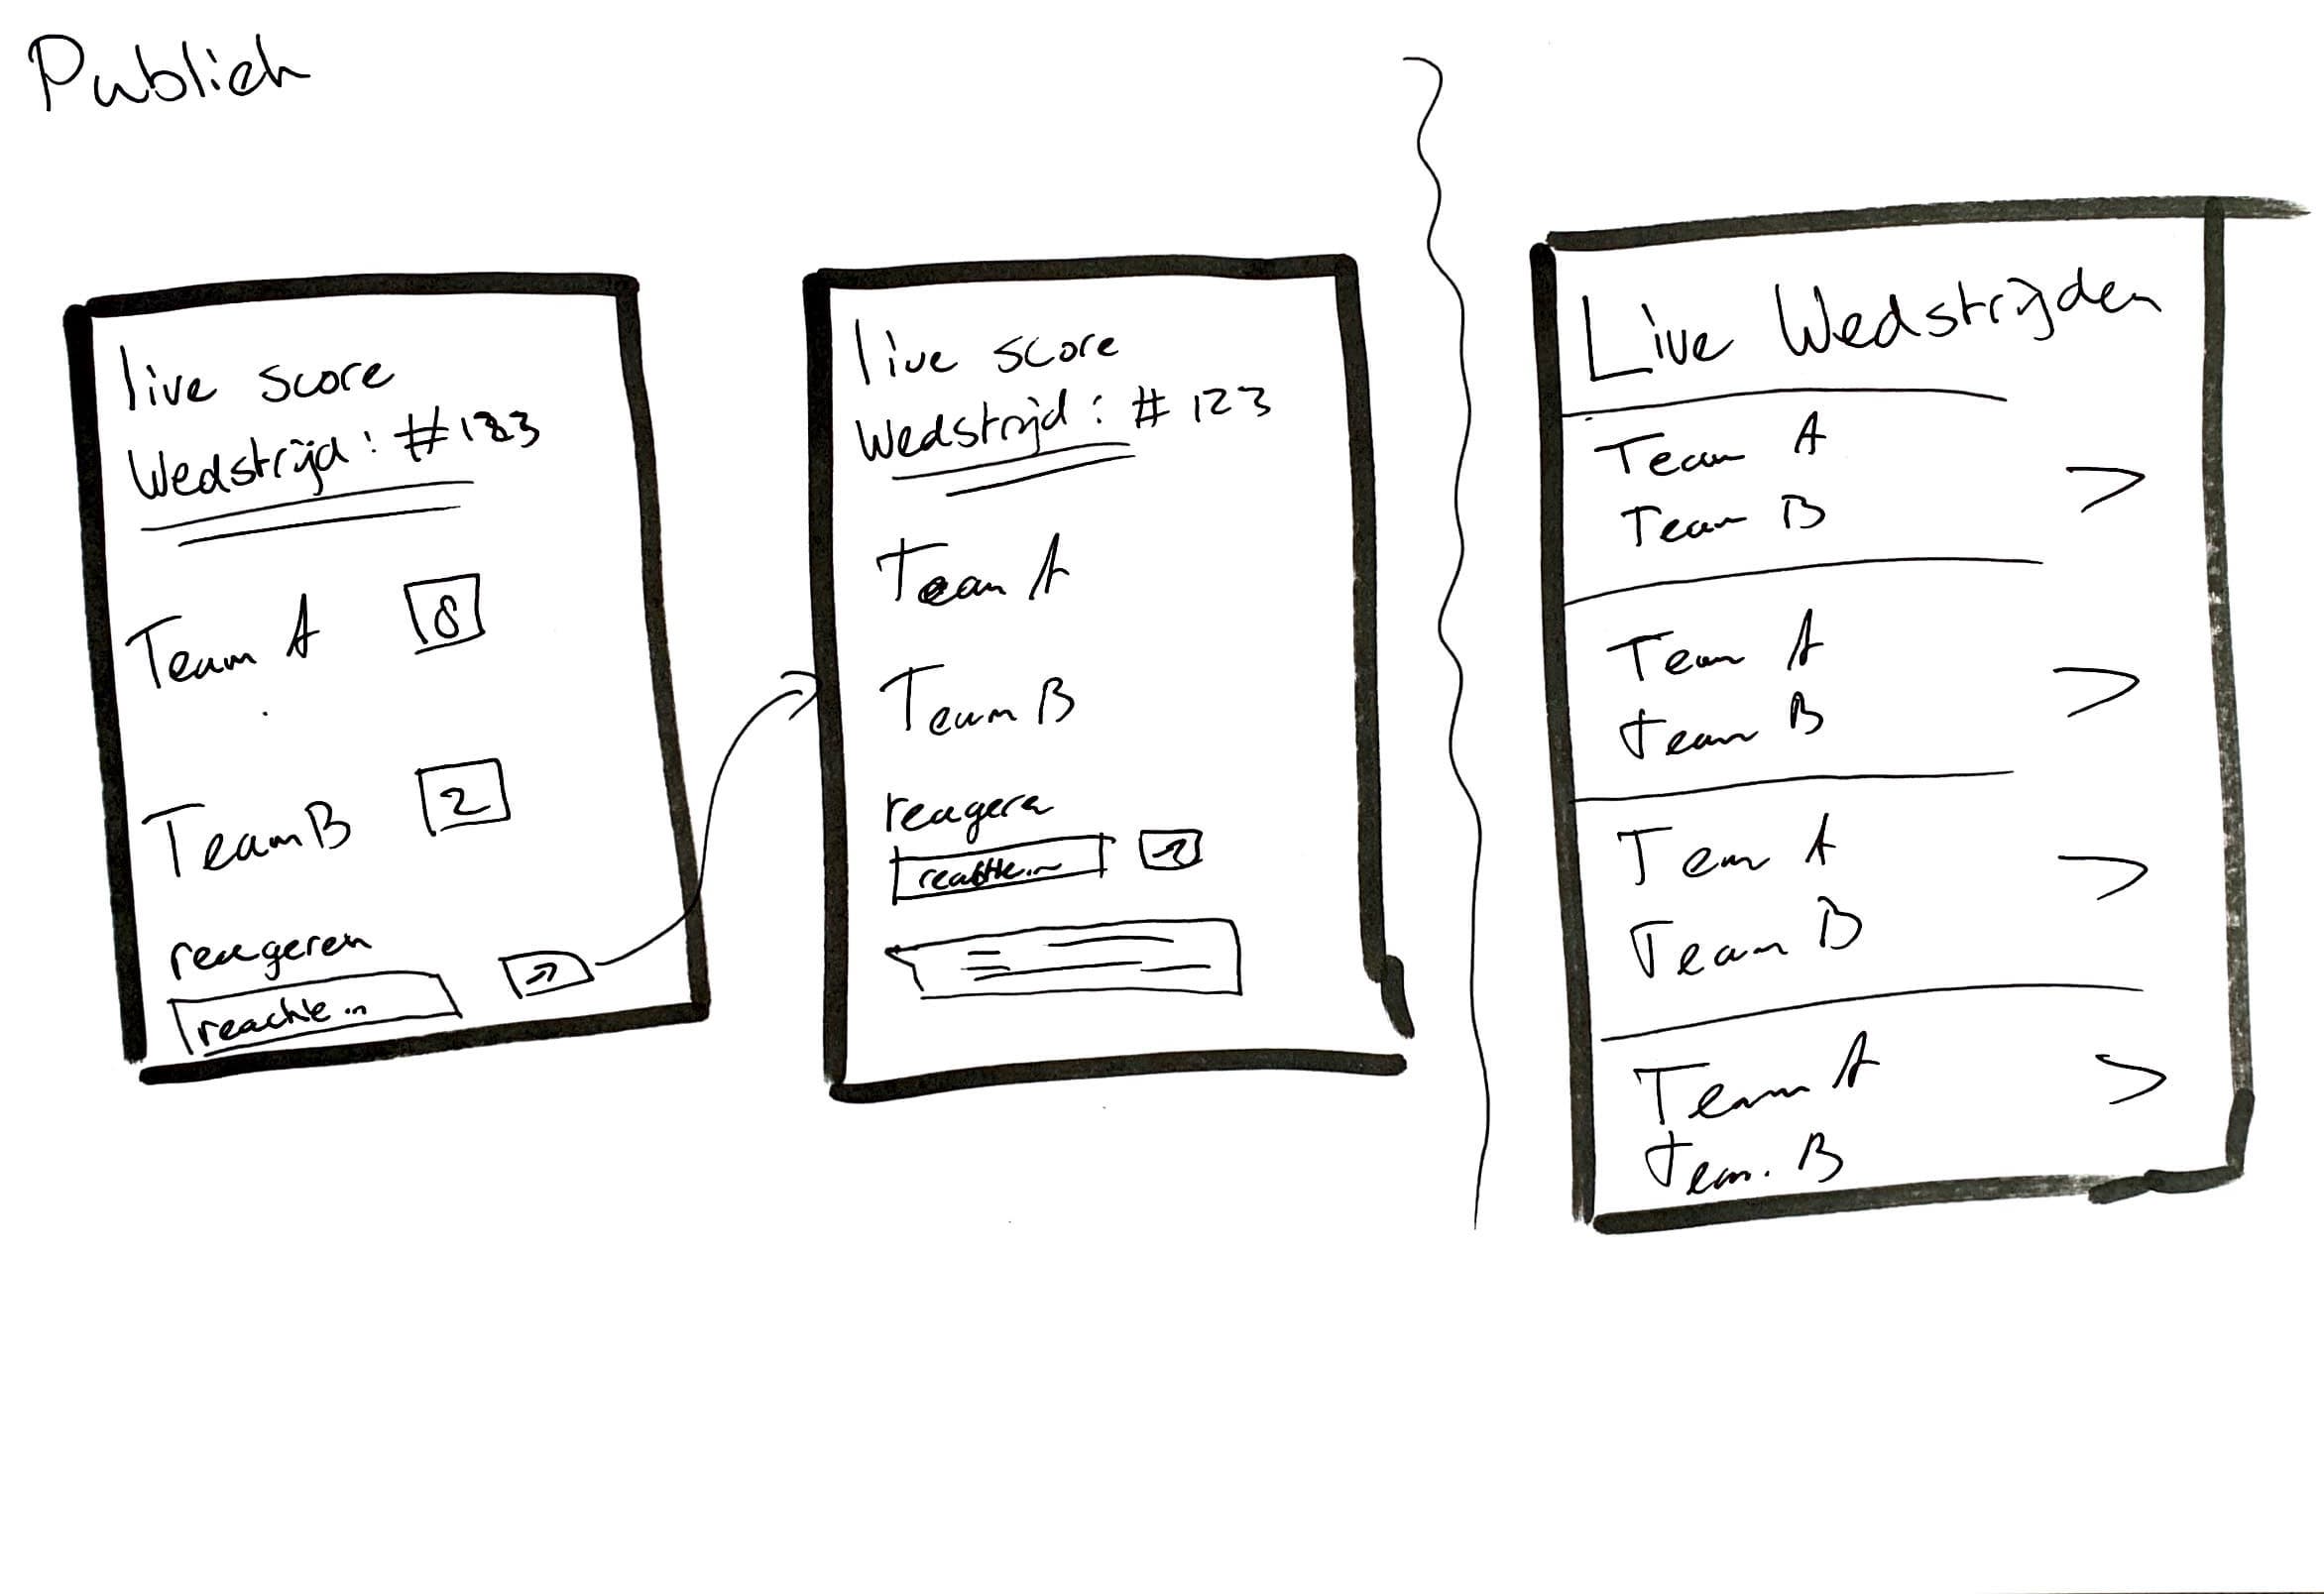 Publiek
live score
Wedstrijd: #123
Team A 8
Team B 2
reageren
reactie...
live score
Wedstrijd: #123
Team A
Team B
reageren
reactie...
Live Wedstrijden
Team A
Team B
Team A
Team B
Team A
Team B
Team A
Team B